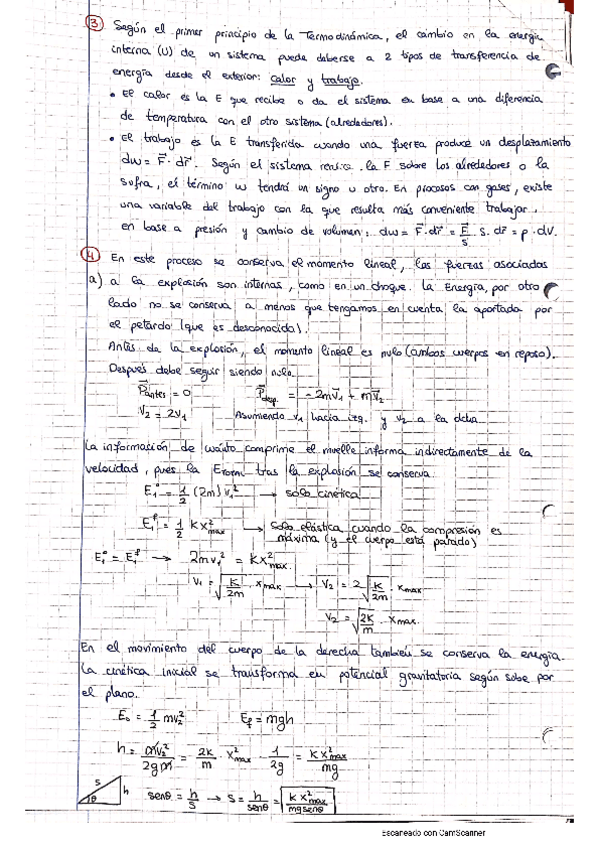 3 Según el primer principio de la Termodinámica, el cambio en la energía
interna (U) de un sistema puede deberse a 2 tipos de transferencia de
energía desde el exterior: calor y trabajo.
• El calor es la E que recibe o da el sistema en base a una diferencia
de temperatura con el otro sistema (alrededores).
• El trabajo es la E transferida cuando una fuerza produce un desplazamiento
dw = F⃗ · dr⃗. Según el sistema la F sobre los alrededores o la
sufra, el término w tendrá un signo u otro. En procesos con gases, existe
una variable del trabajo con la que resulta más conveniente trabajar,
en base a presión y cambio de volumen: dw = F⃗·dr⃗ = F⃗/s · s · dr⃗ = p · dV.
4 En este proceso se conserva el momento lineal, las fuerzas asociadas
a) a la explosión son internas, como en un choque. La Energía, por otro
lado no se conserva a menos que tengamos en cuenta la aportada por
el petardo (que es desconocida).
Antes de la explosión, el momento lineal es nulo (ambos cuerpos en reposo).
Después debe seguir siendo nulo.
P⃗antes = 0 P⃗desp. = -2mv⃗1 + mv⃗2
V2 = 2V1 Asumiendo v1 hacia izq. y v2 a la dcha
La información de cuánto comprime el muelle informa indirectamente de la
velocidad, pues la Emm tras la explosión se conserva.
E1° = 1/2 (2m) v1² → solo cinética
E1f = 1/2 K x²max → solo elástica cuando la compresión es
máxima (y el cuerpo está parado)
E1° = E1f → 2mv1² = Kx²max
v1 = √(K/2m) · xmax → v2 = 2 √(K/2m) · xmax
v2 = √(2K/m) · xmax.
En el movimiento del cuerpo de la derecha también se conserva la energía.
La cinética inicial se transforma en potencial gravitatoria según sube por
el plano.
E0 = 1/2 mv2² Ef = mgh
h = mv2²/2gm = 2K/m · x²max · 1/2g = K x²max/mg
s h θ senθ = h/s → s = h/senθ = K x²max/mg senθ
Escaneado con CamScanner